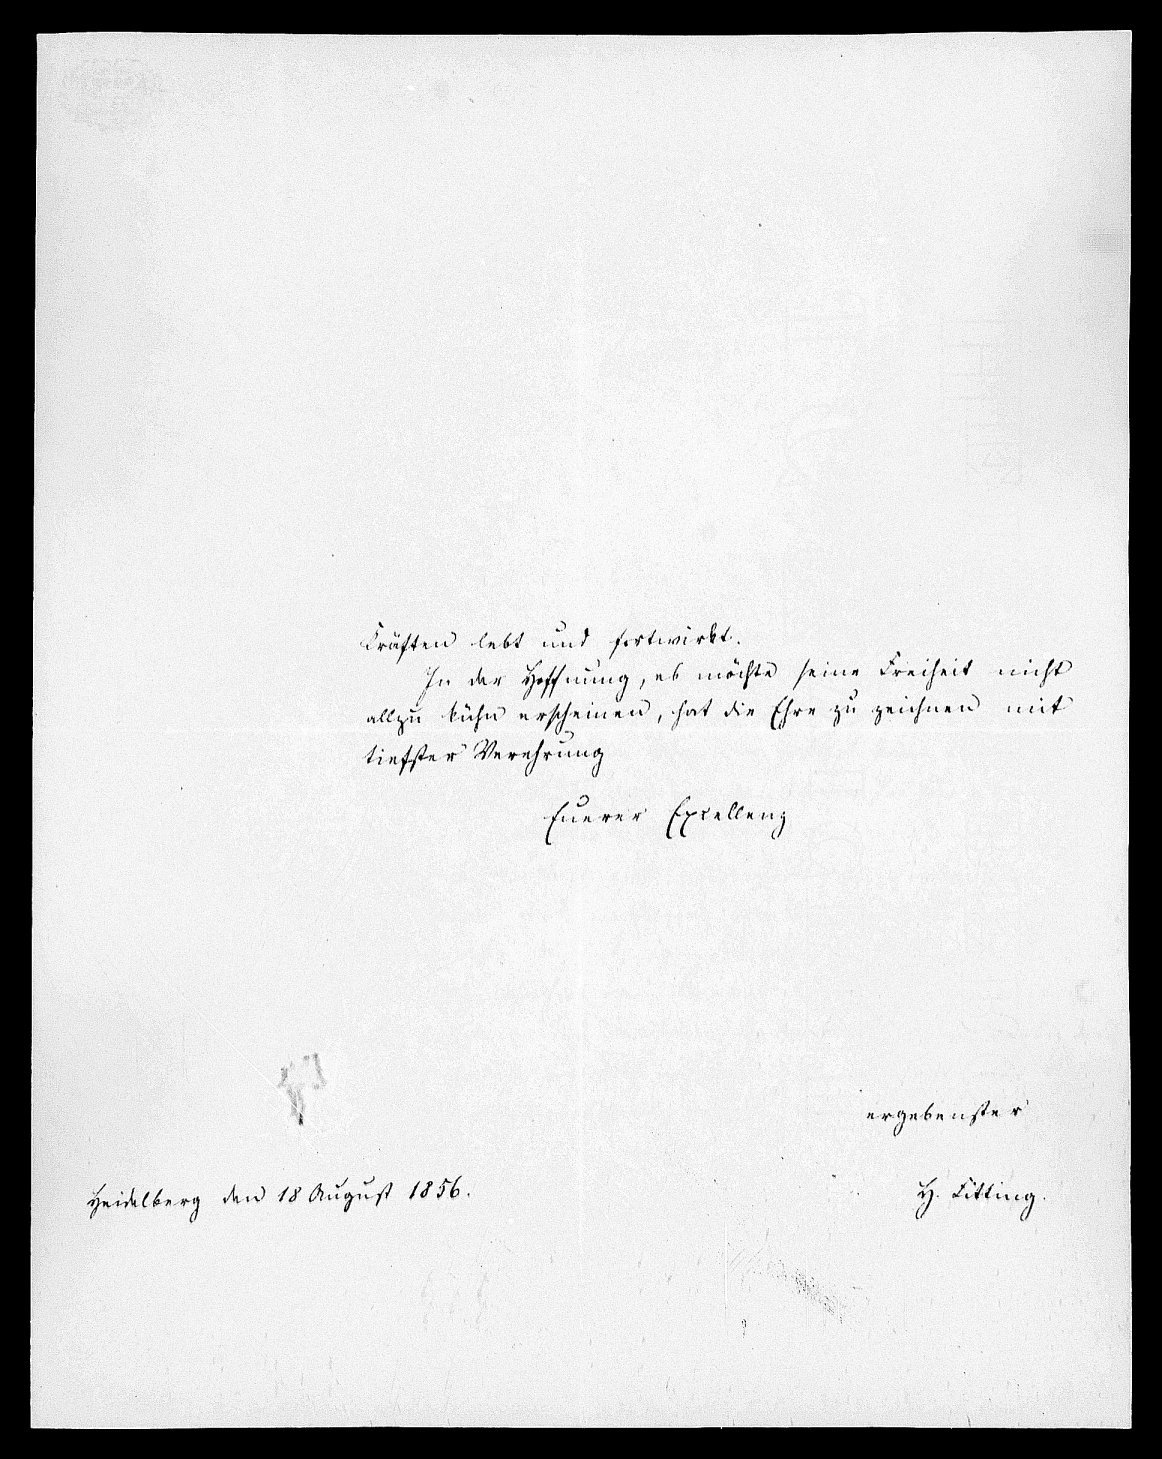 Kräften lebt und fortwirkt.
In der Hoffnung, es möchte seine Freiheit nicht
allzu kühn erscheinen, hat die Ehre zu zeichnen mit
tiefster Verehrung
Euerer Excellenz
ergebenster
Heidelberg den 18 August 1856.
H. Fitting.